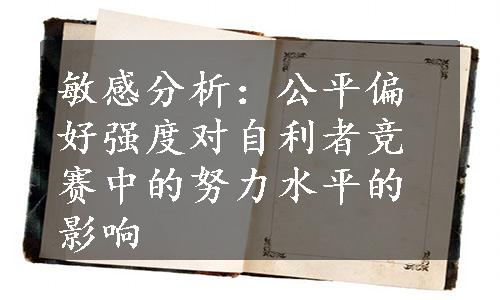 敏感分析：公平偏
好强度对自利者竞
赛中的努力水平的
影响